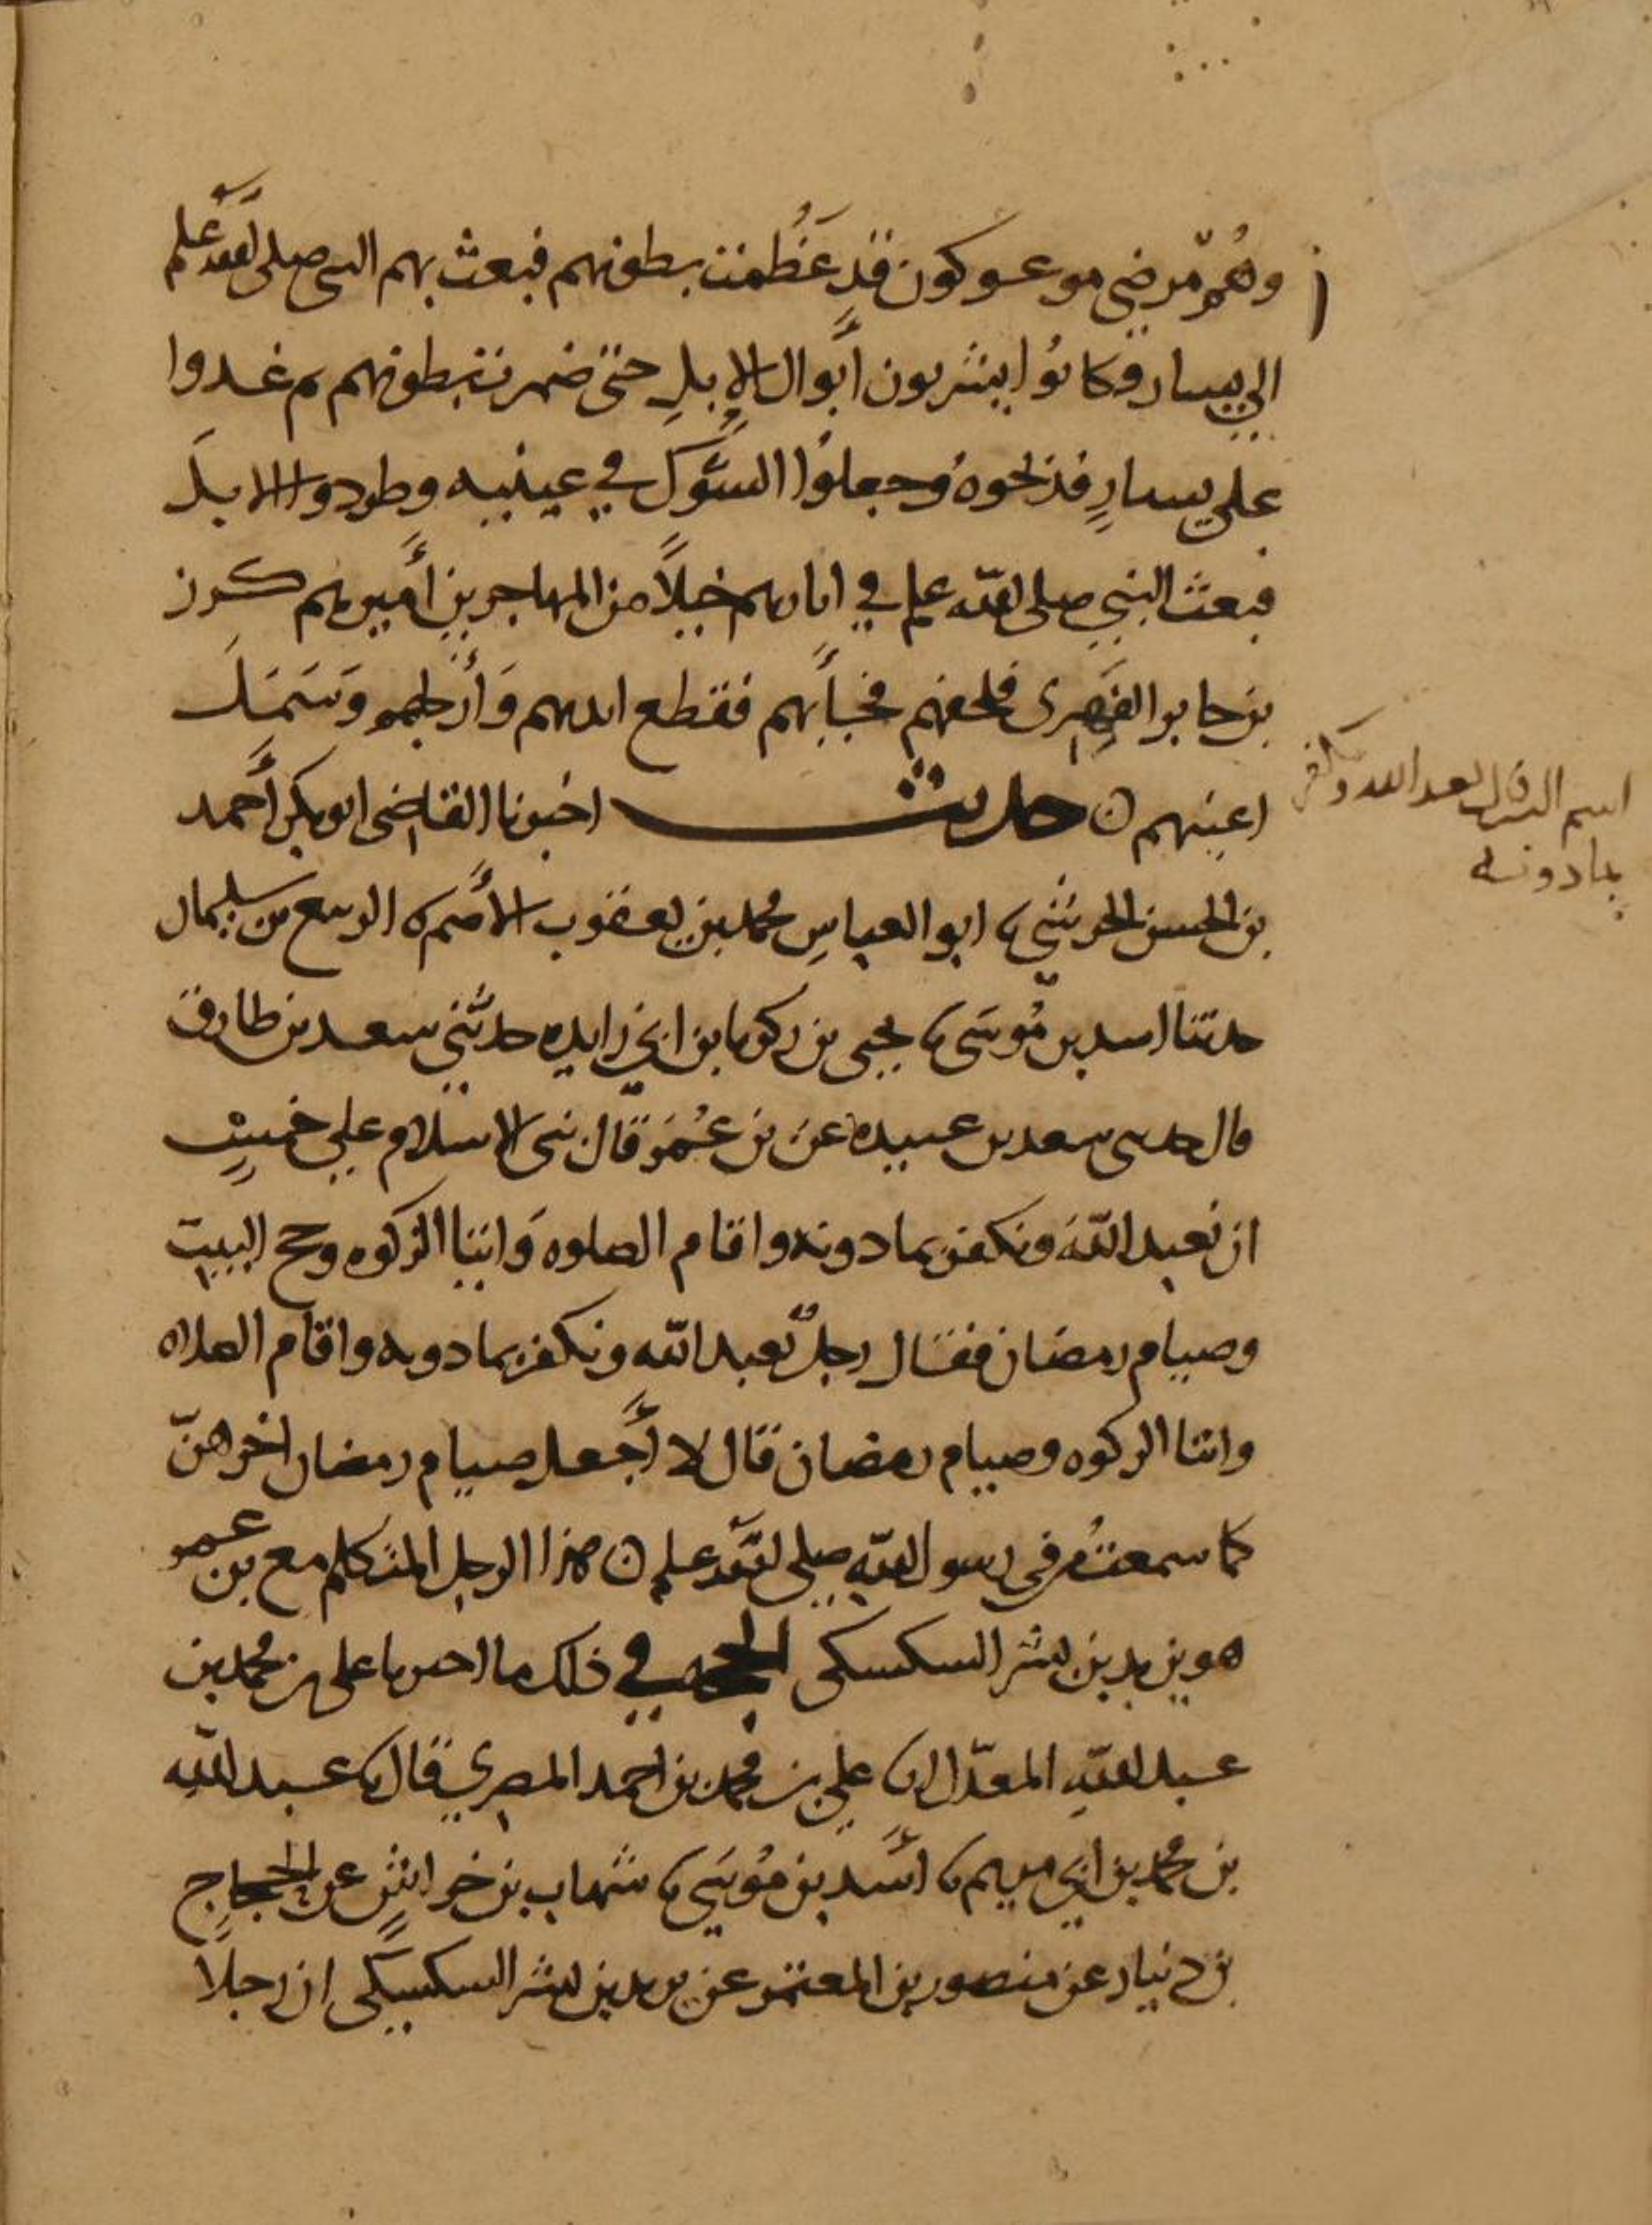 وهُم مّرضى موعوكون قد عَظُمت بطونهم فبعث بهم النبي صلى الله علم
الي يسار وكانوُا يشربون أبوال الإبلِ حتى ضمرت بطونهم ثم غدوا
على يسارٍ فذبحوهُ وجعلوُا الشَّوكَ في عينيه وطردوا الابلَ
فبعث النبي صلى الله علم في اثارهم خيلاً من المهاجرين أميرهم كرز
بن جابر الفِهِري فلحقهم فجأَبهم فقطع ايديهم وَأرجلهم وَسَمَلَ
اعينهم ن حديث اخبرنا القاضي ابو بكر أحمد
بن الحسن الحرشي نا ابو العباسِ محمد بن يعقوب الأصم نا الربيع بن سليمان
حدثنا اسد بن مُوسَى نا يحيى بن زكريا بن ابي زايده حدثني سعد بن طارق
قال حدثني سعد بن عبيده عن بن عُمَر قال بني الاسلام على خمسٍ
ان نعبد اللهَ ونكفر بما دونه واقام الصلوه وَايتا الزكوه وحج البيت
وصيام رمضان فقال رجلٌ نعبد الله ونكفر بما دونه واقام الصلاه
وايتا الزكوه وصيام رمضان قال لا أجعل صيام رمضان اخرهنّ
كما سمعتُ من في رسول الله صلى الله علم ن هذا الرجل المتكلم مع بن عمر
هو يزيد بن بشر السكسكي الحجه في ذلك ما اخبرنا علي بن محمد بن
عبد اللهِ المعدّل انا علي بن محمد بن احمد المصري قال نا عبد اللهِ
بن محمد بن ابي مريم نا أسد بن مُوسَى نا شهاب بن خراشٍ عن الحجاج
بن دينار عن منصور بن المعتمر عن يزيد بن بشر السكسكي ان رجلاً
اسم الرجل نعبد الله ونكفر
بما دونه